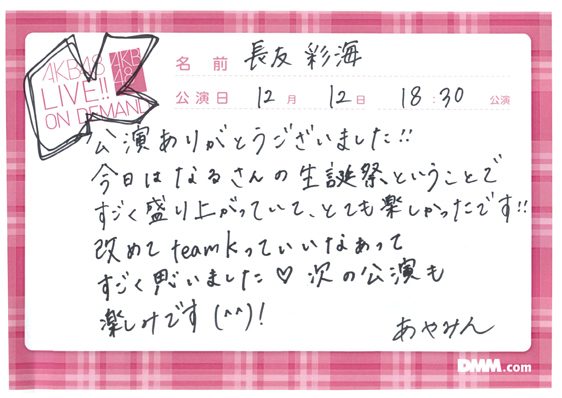 AKB48
LIVE!!
ON DEMAND
AKB
48
名前 長友 彩海
公演日 12月 12日 18:30 公演
公演ありがとうございました!!
今日はなるさんの生誕祭、ということで
すごく盛り上がっていて、とても楽しかったです!!
改めてteamKっていいなあって
すごく思いました♡ 次の公演も
楽しみです(^^)!
あやみん
DMM.com